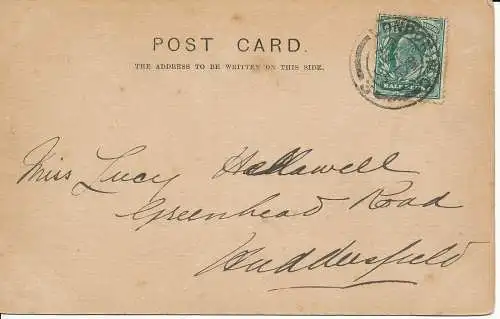 POST CARD.
THE ADDRESS TO BE WRITTEN ON THIS SIDE.
HALF
Miss Lucy Hallawell
Greenhead Road
Huddersfield